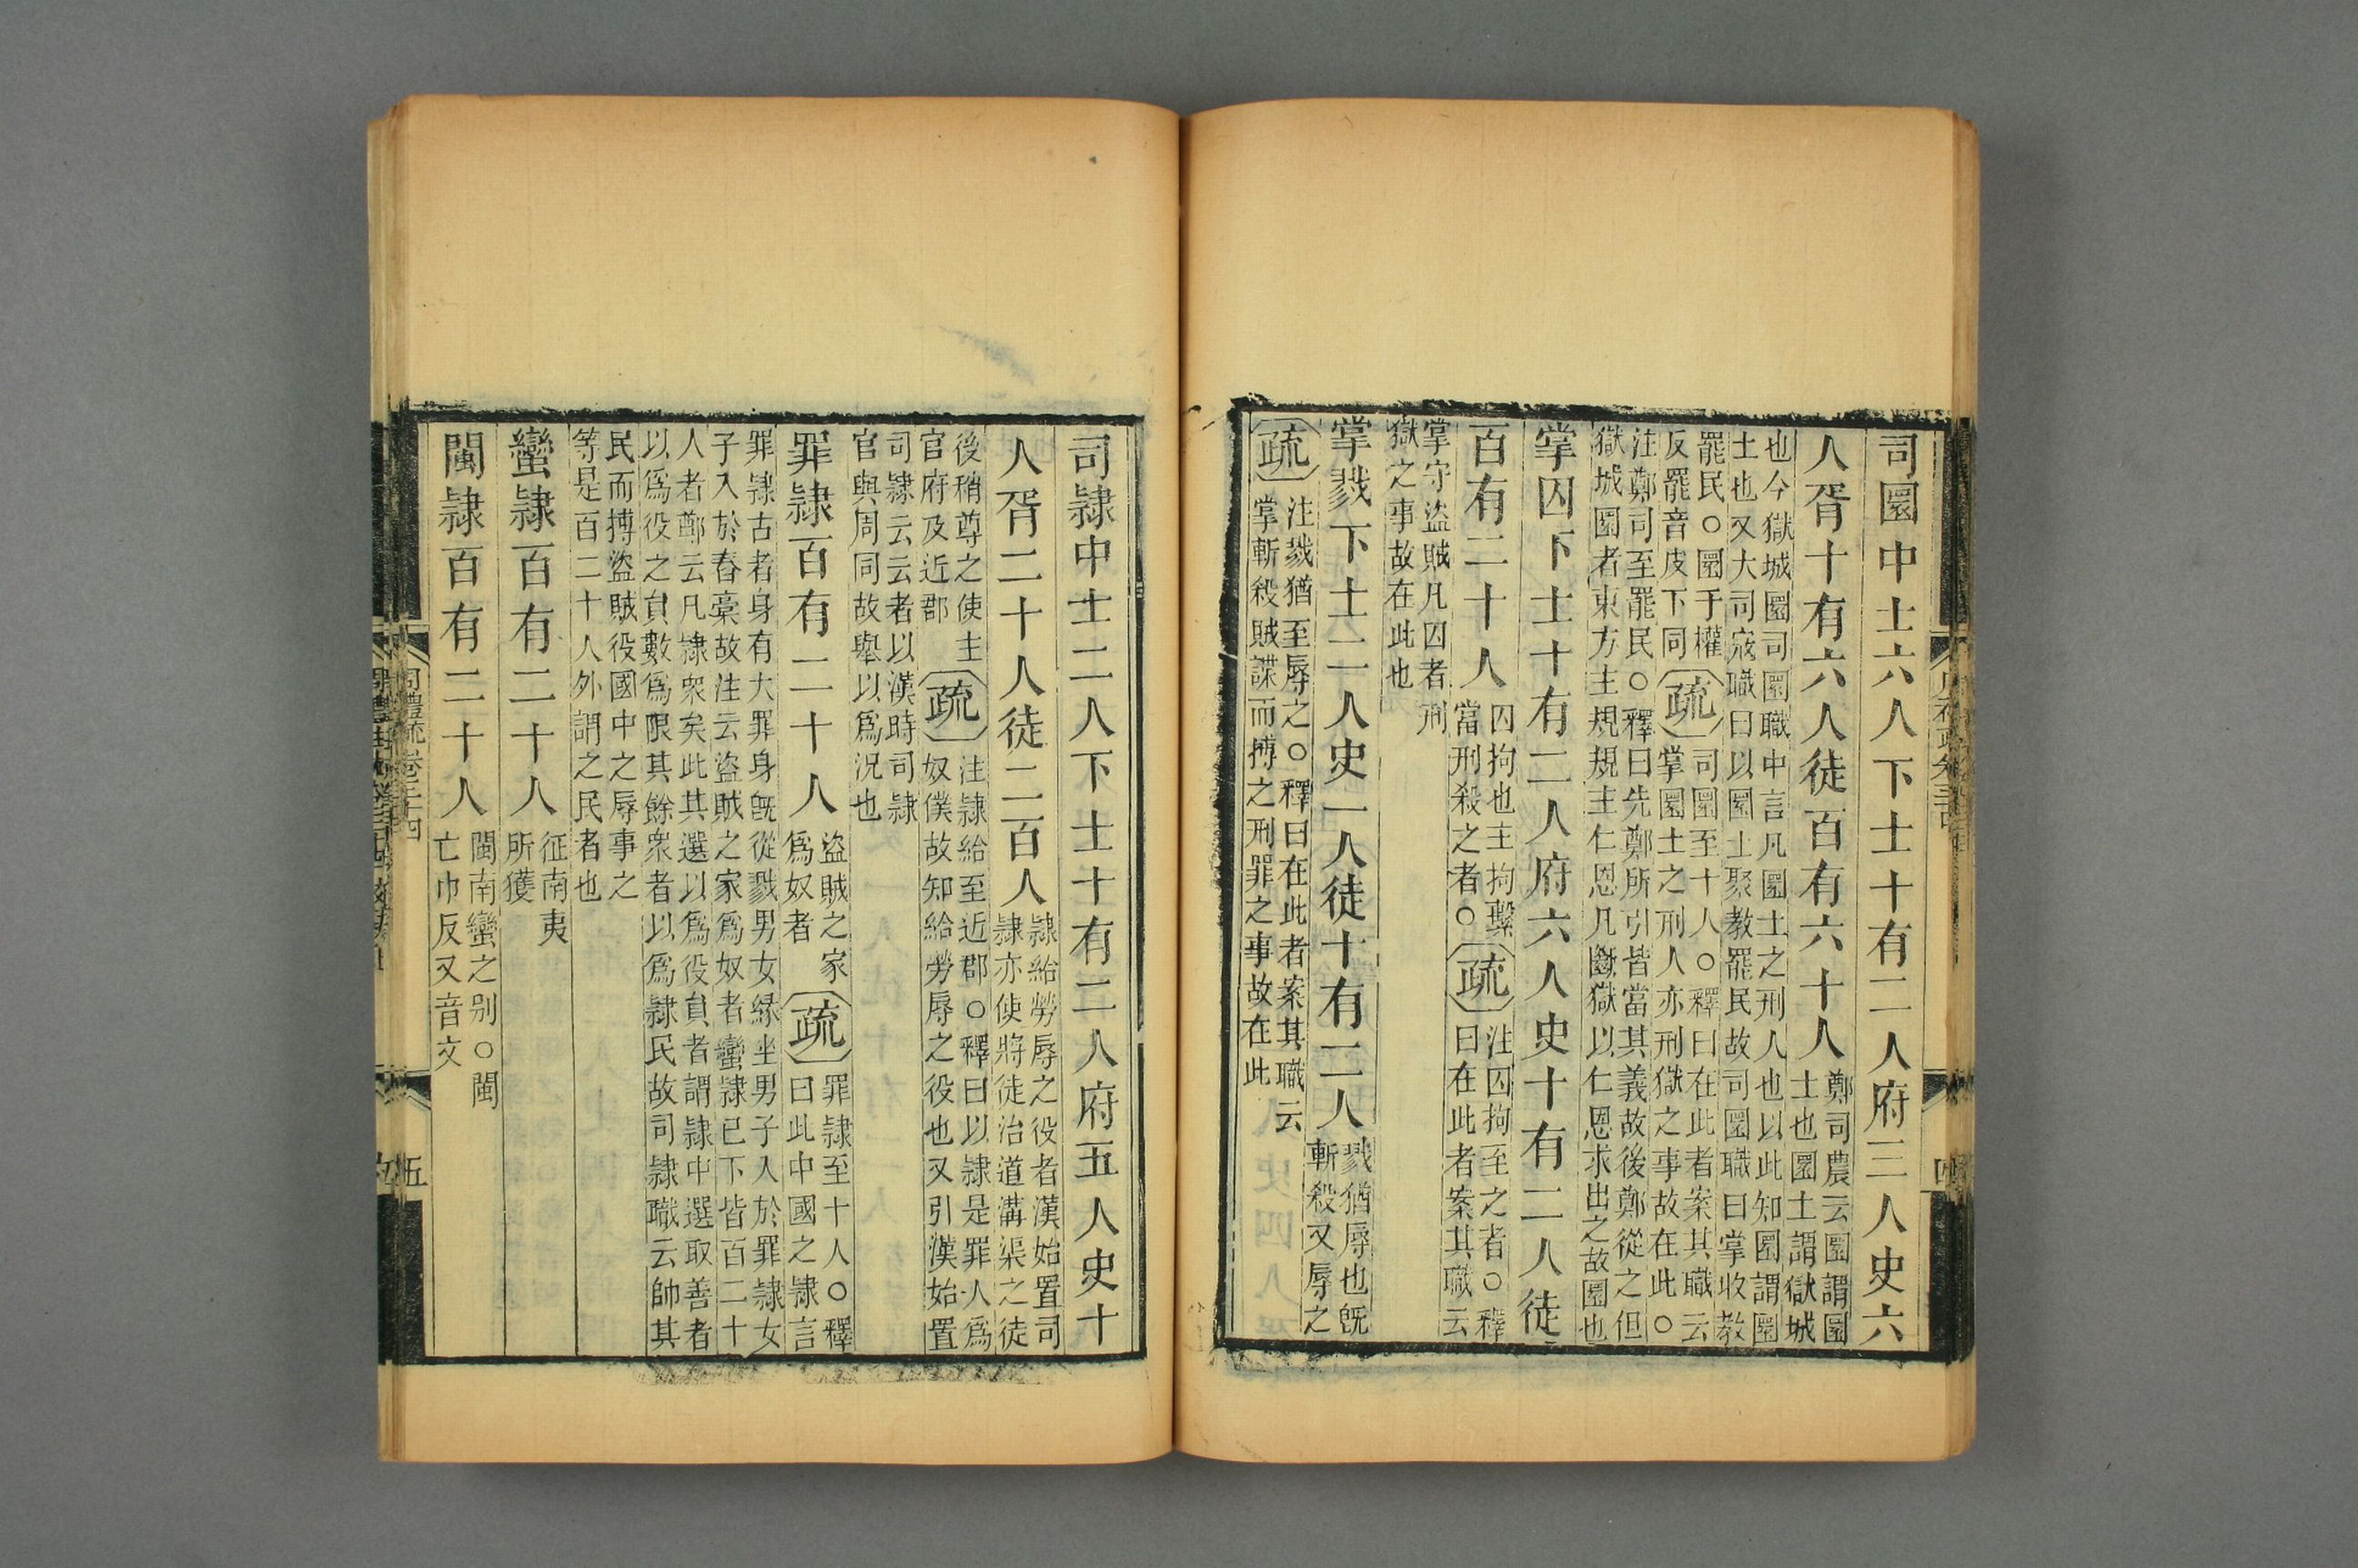 司圜中士六人下士十有二人府三人史六
人胥十有六人徒百有六十人
鄭司農云圜謂圜
土也圜土謂獄城
也今獄城圜司圜職中言凡圜土之刑人也以此知圜謂圜
土也又大司寇職曰以圜土聚教罷民故司圜職曰掌收教
罷民○圜于權
反罷音皮下同
疏
司圜至十人○釋曰在此者案其職云
掌圜土之刑人亦刑獄之事故在此○
注鄭司至罷民○釋曰先鄭所引皆當其義故後鄭從之但
獄城圜者東方主規規主仁恩凡斷獄以仁恩求出之故圜也
掌囚下士十有二人府六人史十有二人徒
百有二十人
囚拘也主拘繫
當刑殺之者○
疏
注囚拘至之者○釋
曰在此者案其職云
掌守盜賊凡囚者刑
獄之事故在此也
掌戮下士二人史一人徒十有二人
戮猶辱也既
斬殺又辱之
疏
注戮猶至辱之○釋曰在此者案其職云
掌斬殺賊諜而搏之刑罪之事故在此
司隸中士二人下士十有二人府五人史十
人胥二十人徒二百人
隸給勞辱之役者漢始置司
隸亦使將徒治道溝渠之徒
後稍尊之使主
官府及近郡
疏
注隸給至近郡○釋曰以隸是罪人為
奴僕故知給勞辱之役也又引漢始置
司隸云云者以漢時司隸
官與周同故舉以爲況也
罪隸百有二十人
盜賊之家
爲奴者
疏
罪隸至十人○釋
曰此中國之隸言
罪隸古者身有大罪身既從戮男女緣坐男子入於罪隸女
子入於舂槀故注云盜賊之家爲奴者蠻隸已下皆百二十
人者鄭云凡隸衆矣此其選以爲役員者謂隸中選取善者
以爲役之員數爲限其餘衆者以爲隸民故司隸職云帥其
民而搏盜賊役國中之辱事之
等是百二十人外謂之民者也
蠻隸百有二十人
征南夷
所獲
閩隸百有二十人
閩南蠻之别○閩
亡巾反又音文
周禮疏卷三十四
五
四